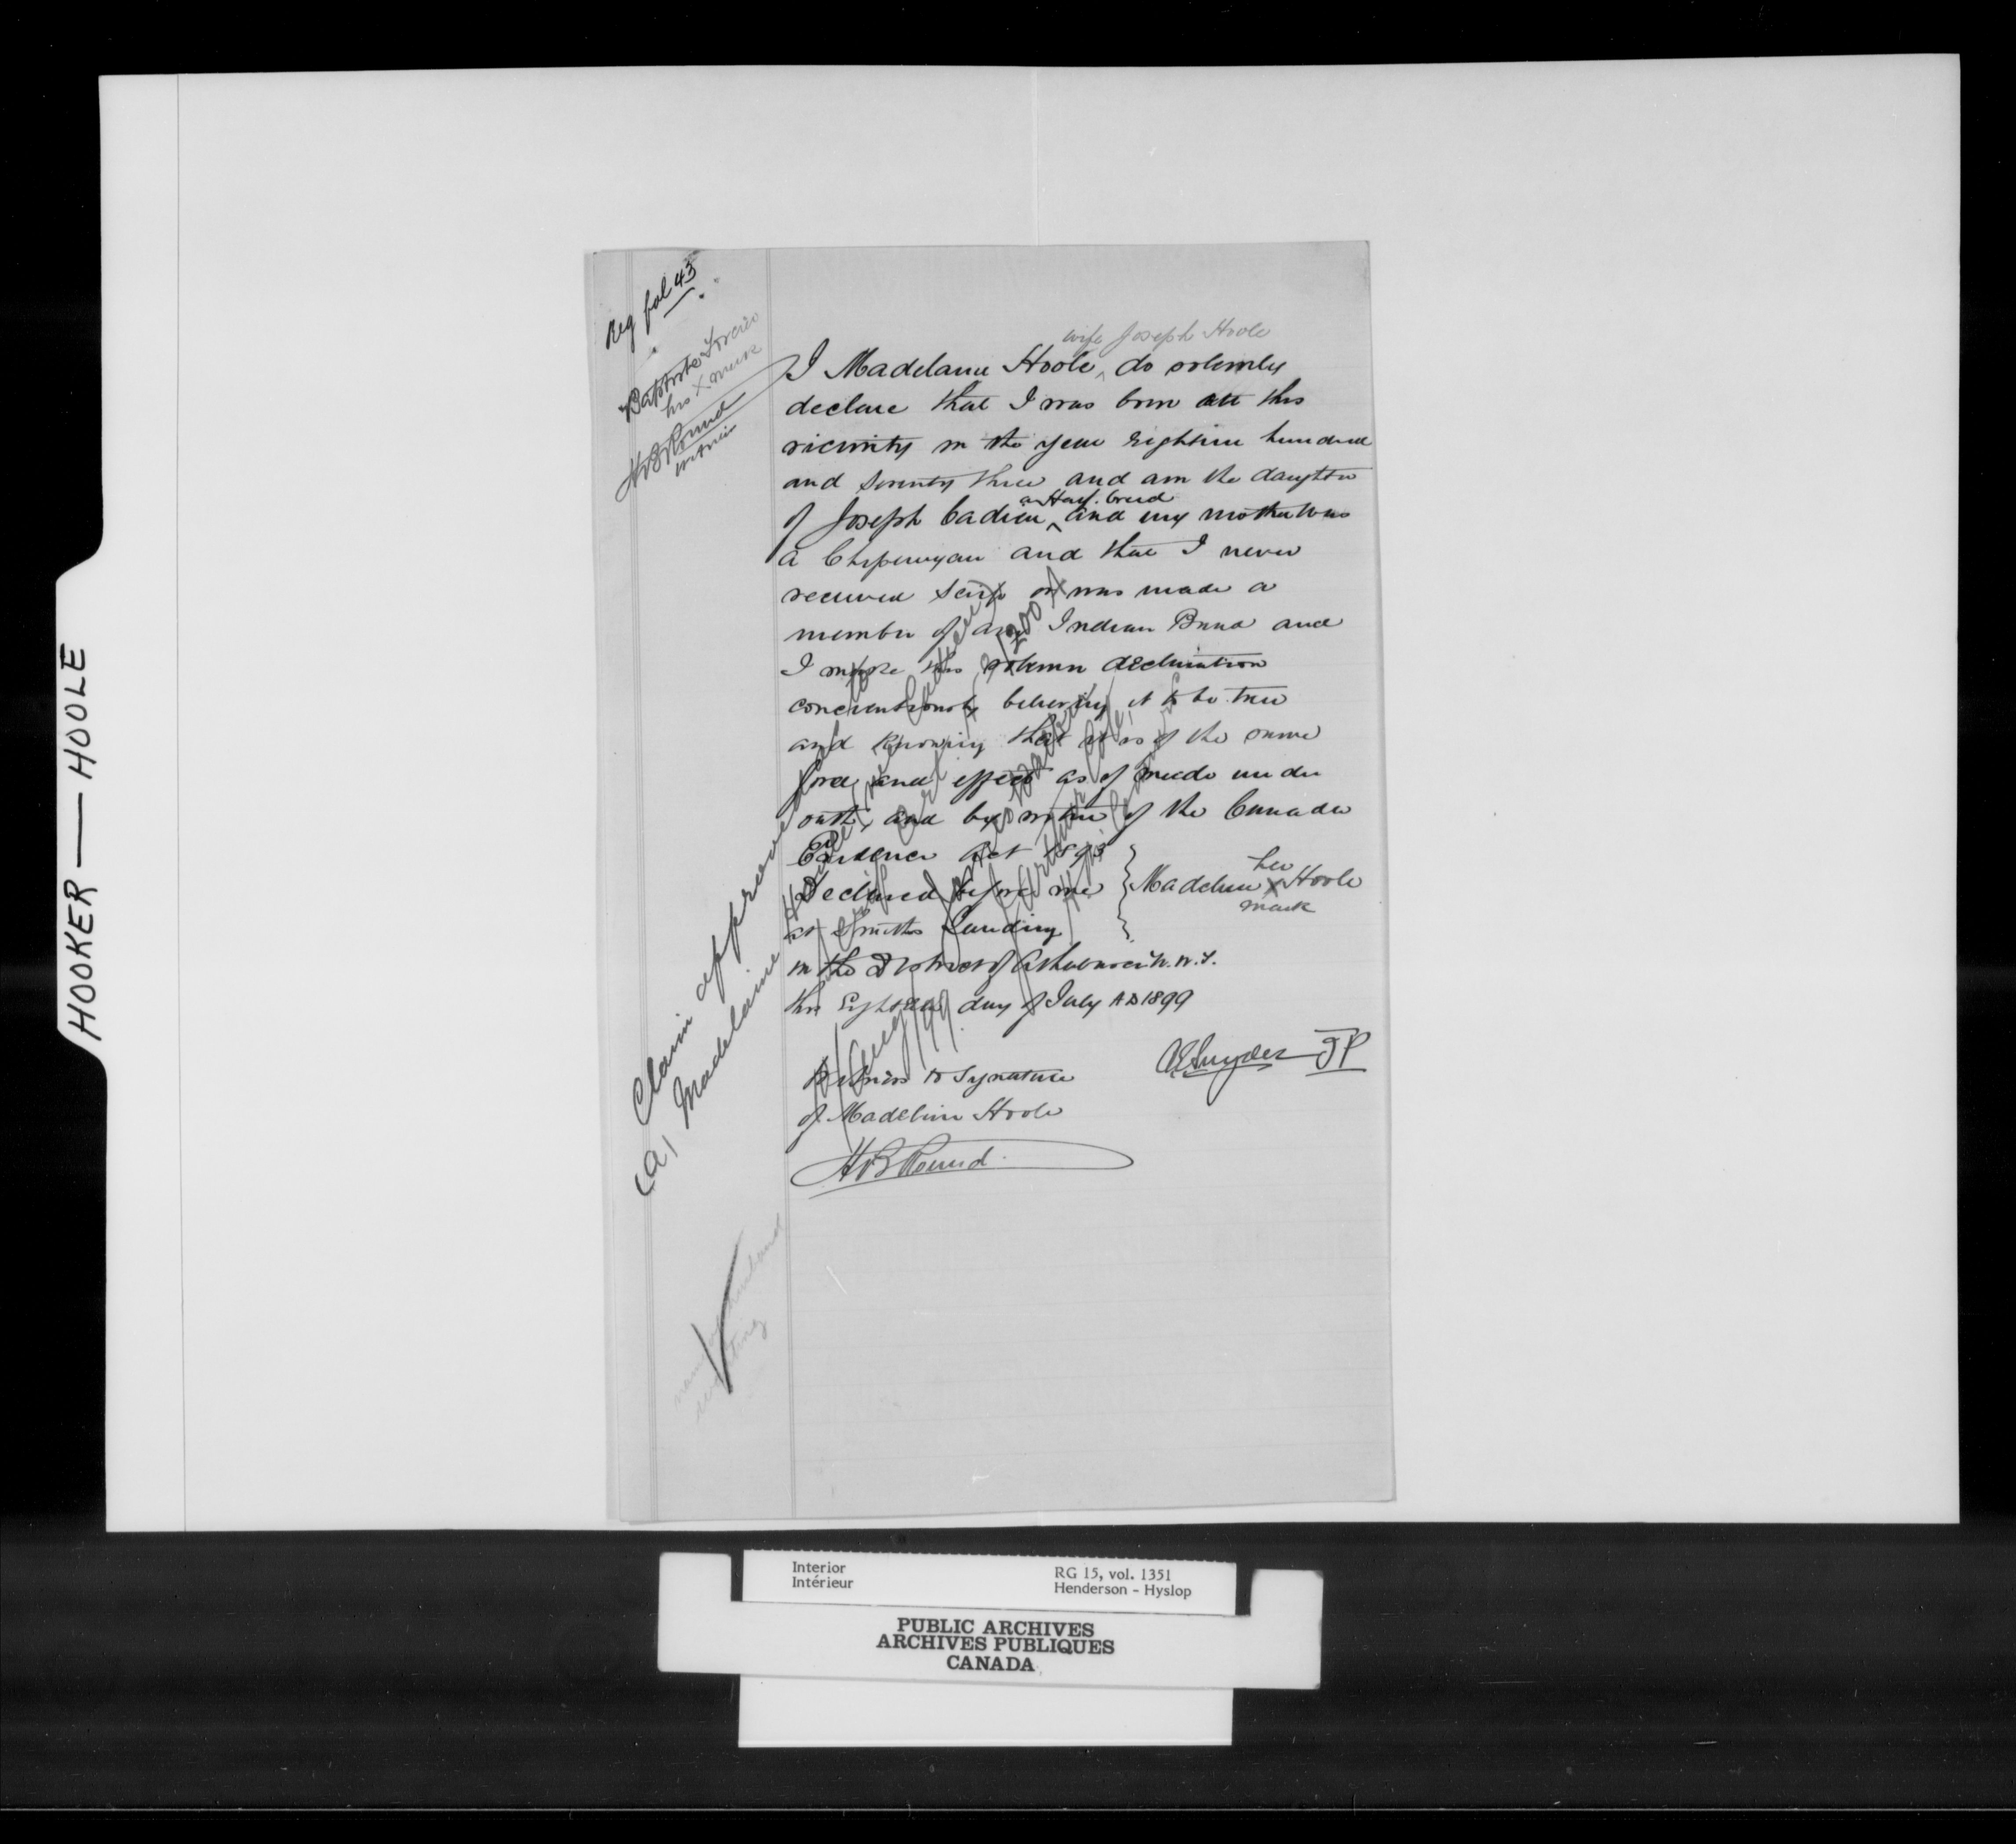 HOOKER — HOOLE
Reg fol 43
Baptiste
his X mark
H B Round
witness
wife Joseph Hoole
I Madelaine Hoole, do solemnly
declare that I was born att this
vicinity in the year Eighteen hundred
and seventy three and am the daughter
a Half-breed
of Joseph Cadieu ^ and my mother was
a Chipewyan and that I never
received scrip or was made a
member of any Indian Band and
I make this solemn declaration
concientiously believing it to be true
and knowing that it is of the same
force and effect as if made under
oath, and by virtue of the Canada
Evidence Act 1893
Declared before me
at Smiths Landing
in the District of Athabasca N.W.T.
this Eighteenth day of July AD 1899
her
Madeline X Hoole
mark
Witness to Signature
of Madeline Hoole
H B Round
Snyder JP
Claim approved
(a) Madelaine Hoole
Aug / 99
Interior
Intérieur
RG 15, vol. 1351
Henderson - Hyslop
PUBLIC ARCHIVES
ARCHIVES PUBLIQUES
CANADA